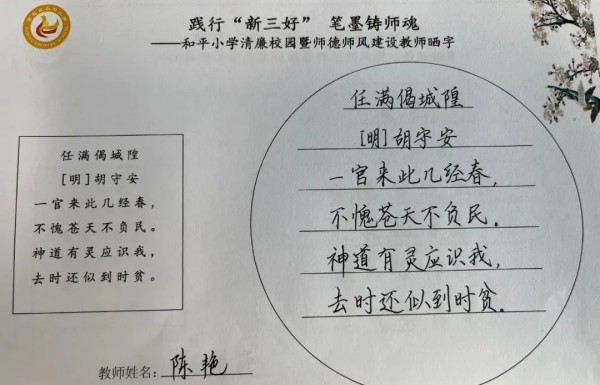 践行“新三好” 笔墨铸师魂
——和平小学清廉校园暨师德师风建设教师晒字
任满偈城隍
[明]胡守安
一官来此几经春，
不愧苍天不负民。
神道有灵应识我，
去时还似到时贫。
任满偈城隍
[明]胡守安
一官来此几经春，
不愧苍天不负民。
神道有灵应识我，
去时还似到时贫。
教师姓名：陈艳